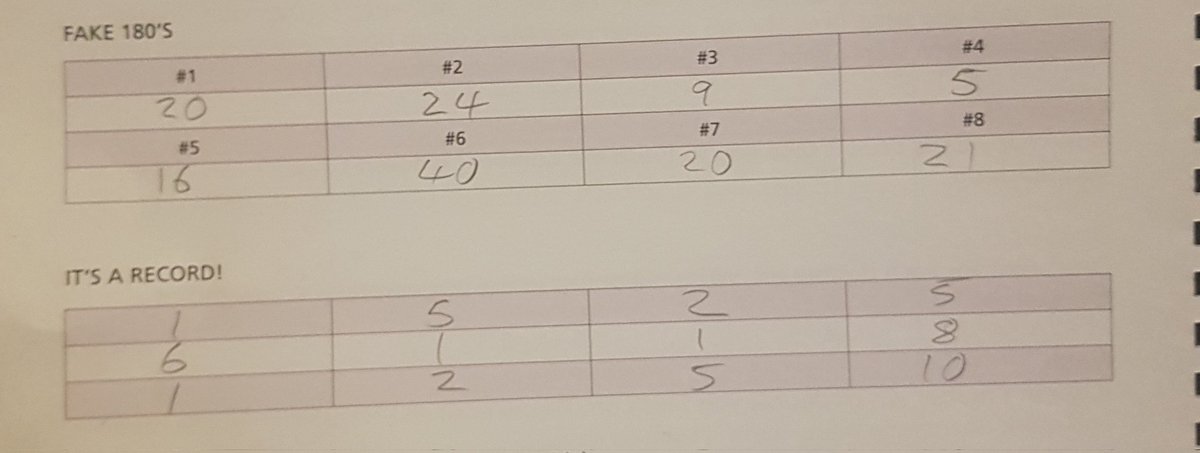 FAKE 180'S
#1 #2 #3 #4
20 24 9 5
#5 #6 #7 #8
16 40 20 21
IT'S A RECORD!
1 5 2 5
6 1 1 8
1 2 5 10